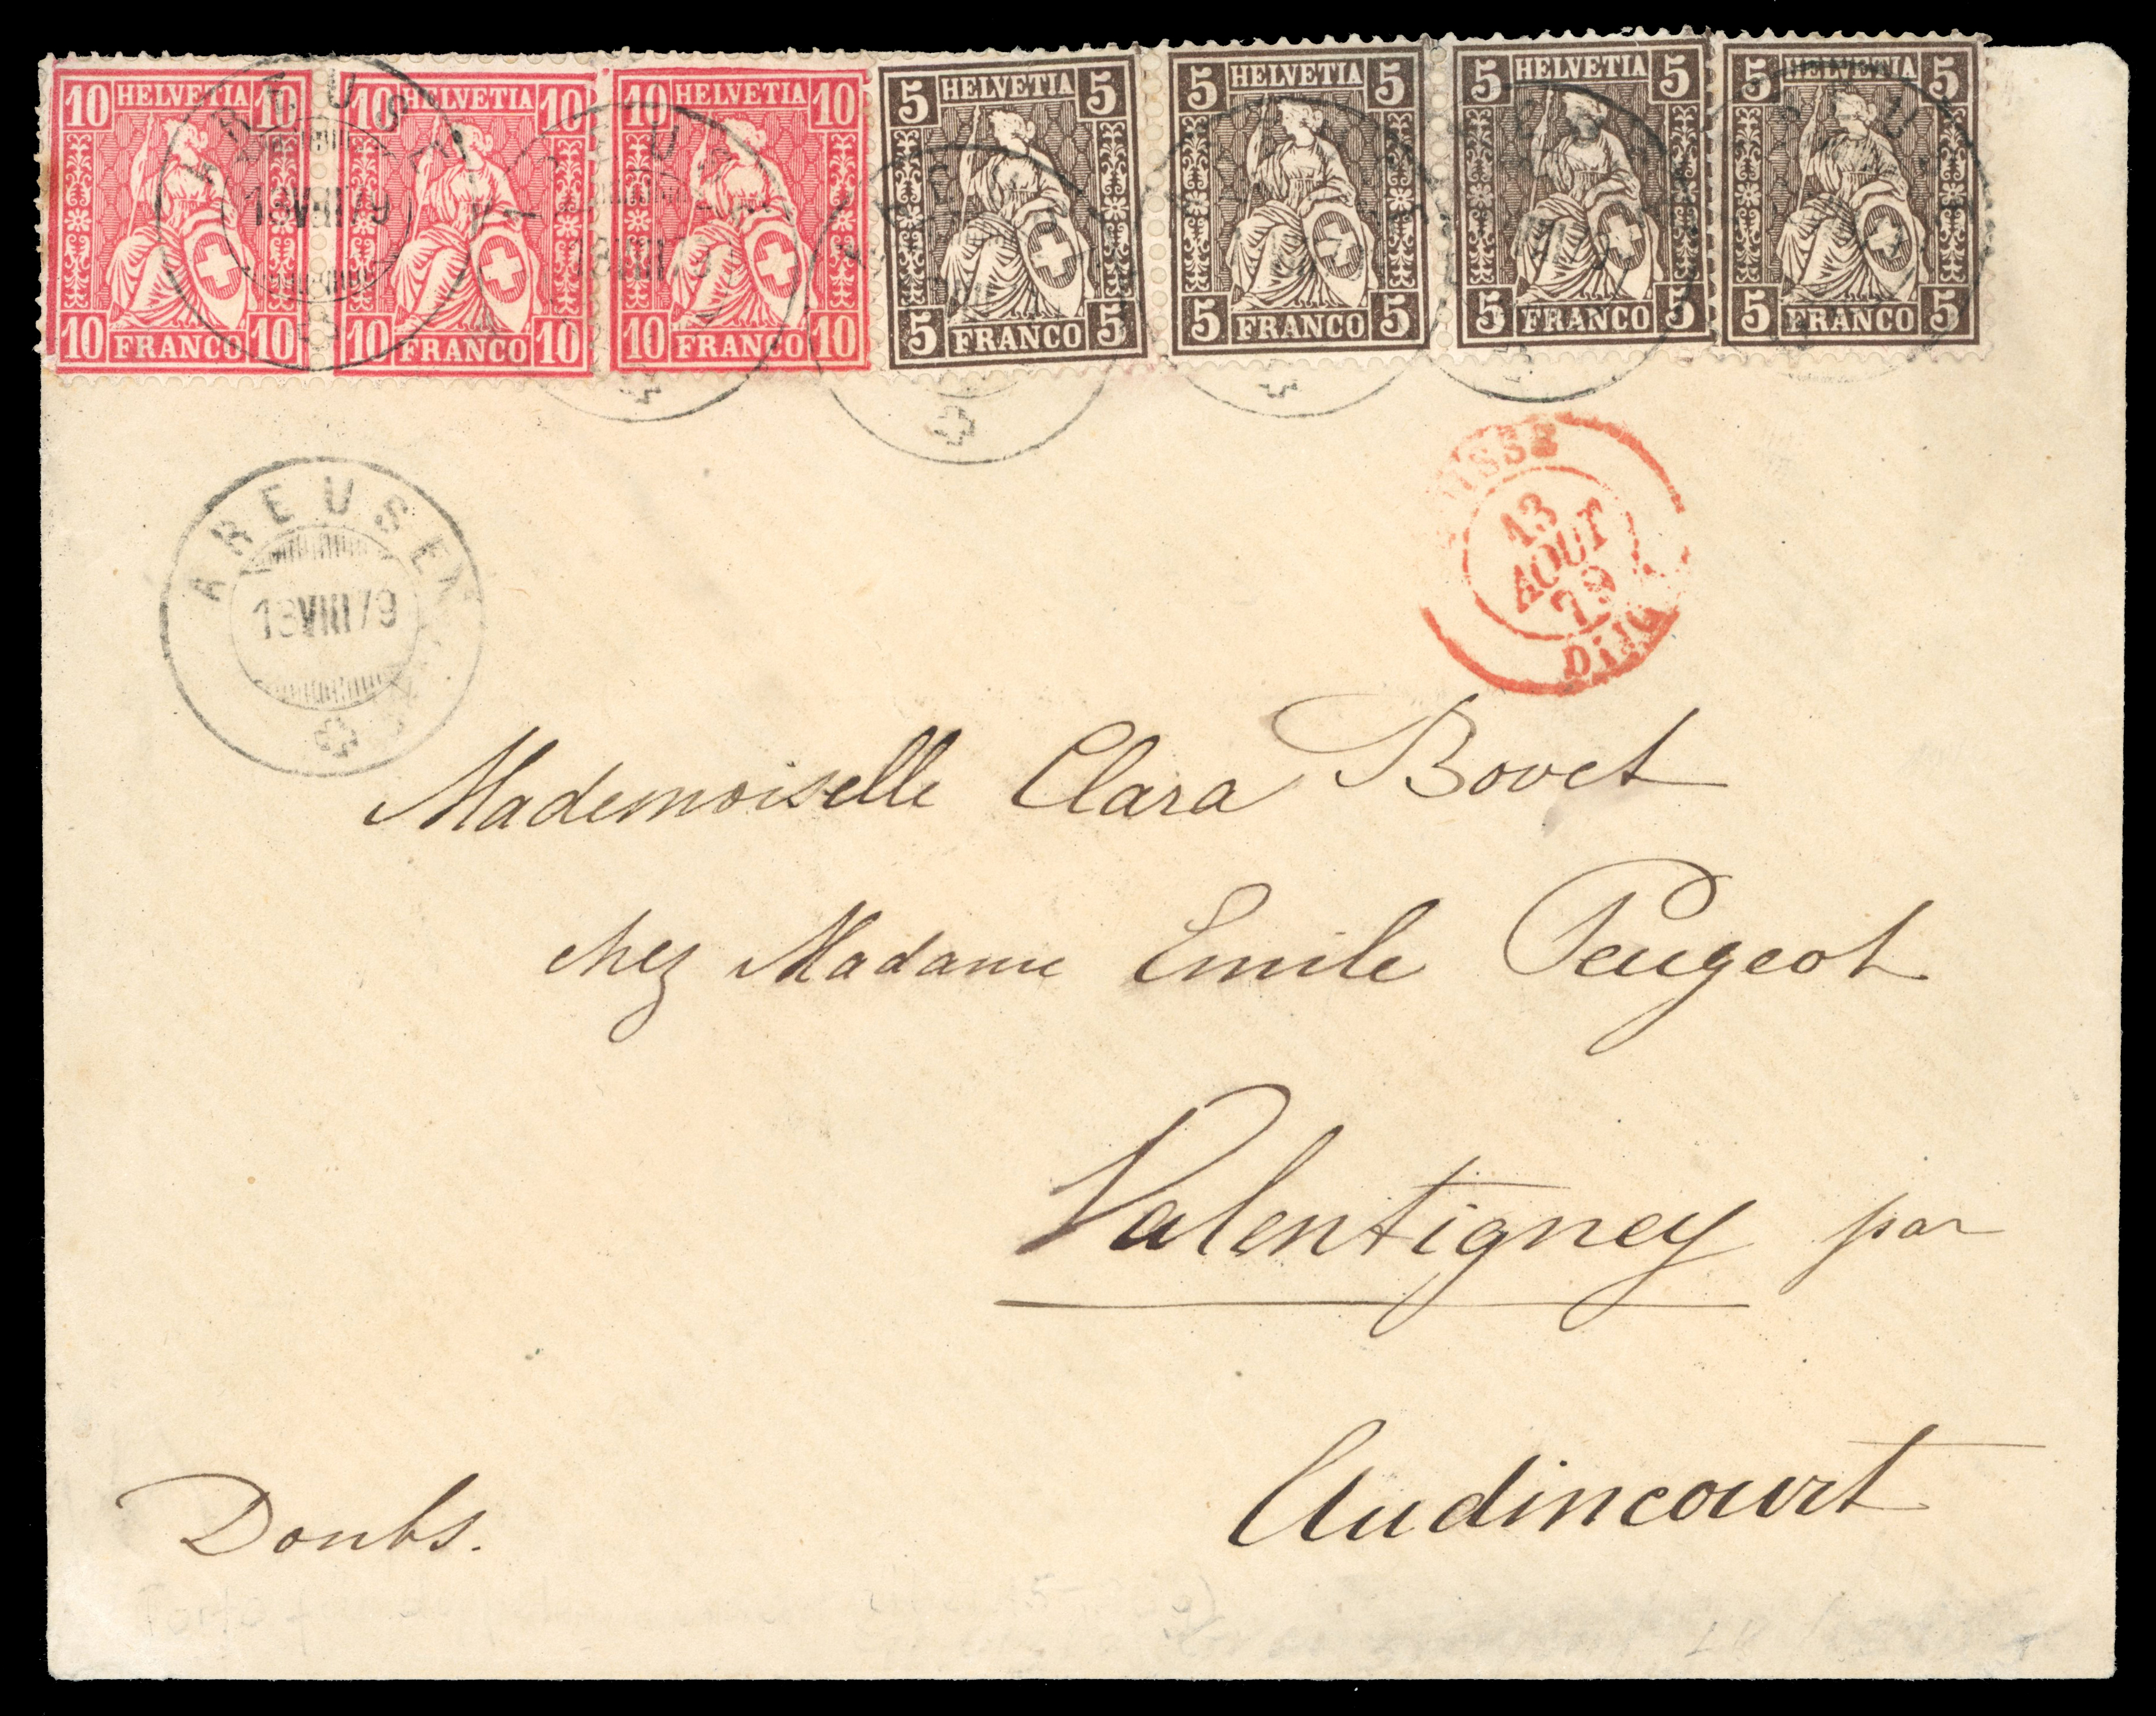 10 HELVETIA 10
10 FRANCO 10
10 HELVETIA 10
10 FRANCO 10
10 HELVETIA 10
10 FRANCO 10
5 HELVETIA 5
5 FRANCO 5
5 HELVETIA 5
5 FRANCO 5
5 HELVETIA 5
5 FRANCO 5
5 HELVETIA 5
5 FRANCO 5
AREUSE
13 VIII 79
13 VIII 79
AREUSE
13 VIII 79
SUISSE
13
AOUT
79
Mademoiselle Clara Bovet
chez Madame Emile Peugeot
Valentigney par
Audincourt
Doubs.